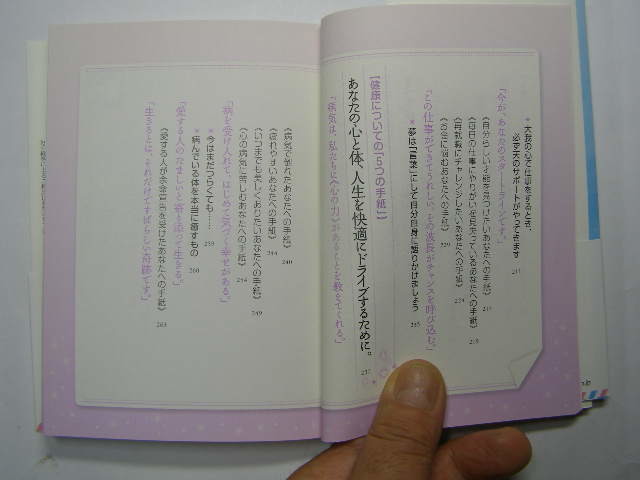 ＊大我の心で仕事をするとき、
必ず天のサポートがやってきます 211
「今が、あなたのスタートラインです。」
《自分らしい才能を見つけたいあなたへの手紙》
《毎日の仕事にやりがいを見失っているあなたへの手紙》 218
《再就職にチャレンジしたいあなたへの手紙》 224
《お金に悩むあなたへの手紙》 229
「この仕事ができてうれしい。その波長がチャンスを呼び込む。」
＊夢は「言葉」にして自分自身に語りかけましょう 235
【健康についての「5つの手紙」】
あなたの心と体、人生を快適にドライブするために。 237
「病気は、私たちに〈心の力〉があることを教えてくれる。」
《病気で倒れたあなたへの手紙》 240
《疲れやすいあなたへの手紙》 244
《いつまでも美しくありたいあなたへの手紙》 249
《心の病に苦しむあなたへの手紙》 254
「病を受け入れて、はじめて気づく幸せがある。」
＊今はまだつらくても…… 259
＊病んでいる体を本当に癒すもの 260
「愛する人のたましいと寄り添って生きる。」
《愛する人が余命宣告を受けたあなたへの手紙》 263
「生きるとは、それだけですばらしい奇跡です。」